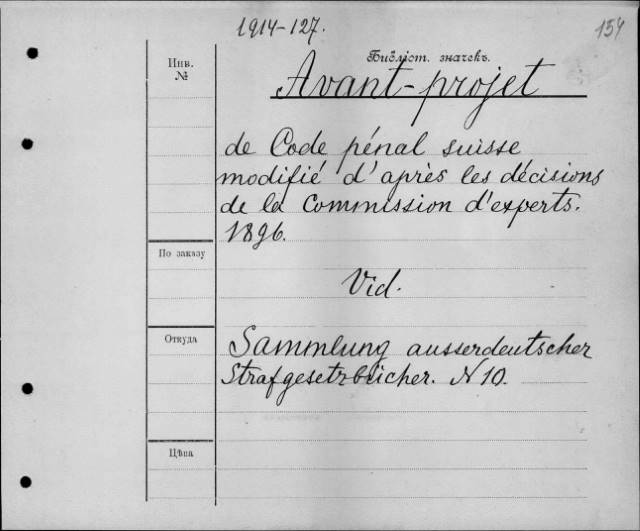 1914-127.
154
Библіот. значекъ.
Инв.
№
Avant-projet
de Code pénal suisse
modifié d'après les décisions
de la Commission d'experts.
1896.
По заказу
Vid.
Откуда
Sammlung ausserdeutscher
Strafgesetzbücher. N 10.
Цѣна